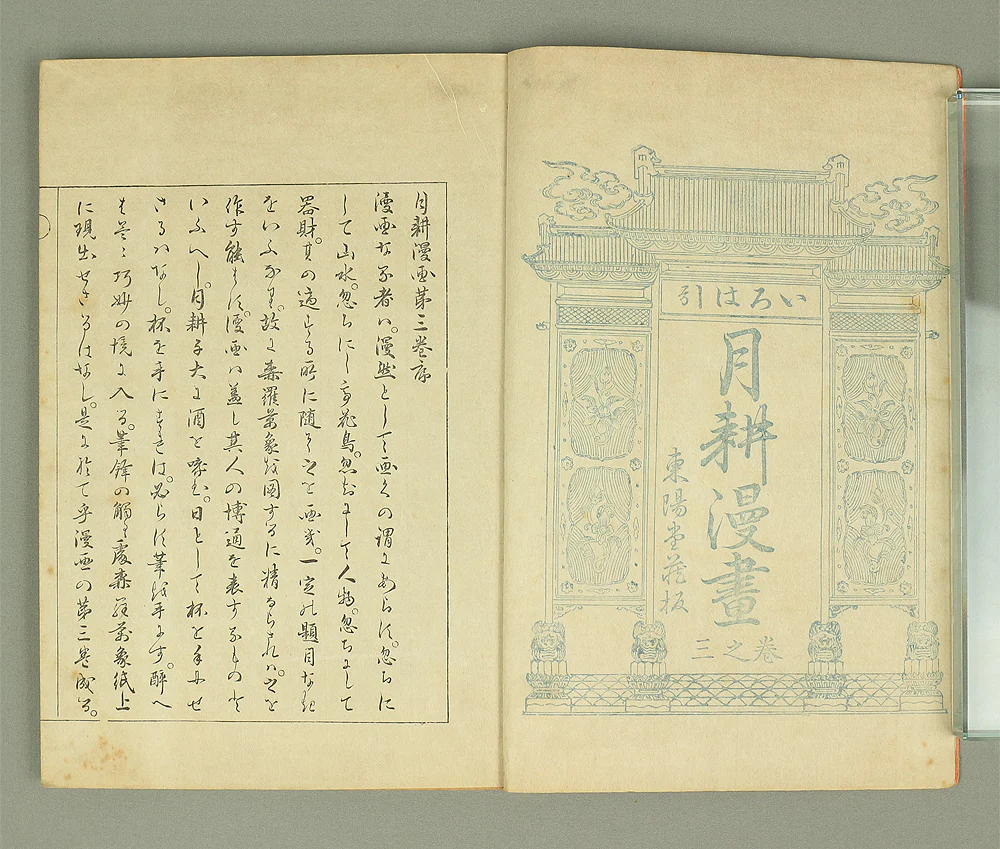 いろは引
月耕漫畫
東陽堂蔵板
巻之三
月耕漫画第三巻序
漫画なる者ハ。漫然として画くの謂にあらす。忽ちに
して山水。忽ちにして花鳥。忽ちにして人物。忽ちにして
器財。其の適する所に随ふて之を画き。一定の題目なき
をいふなり。故に森羅萬象を図するに精ならされハ。之を
作す能はす。漫画ハ蓋し其人の博通を表するものと
いふへし。月耕子大に酒を嗜む。日として杯を手にせ
さるハなし。杯を手にすれは。必らす筆を手にす。酔へ
は益々巧妙の境に入る。筆鋒の觸る處森羅萬象紙上
に現出せさるはなし。是に於て乎漫画の第三巻成る。